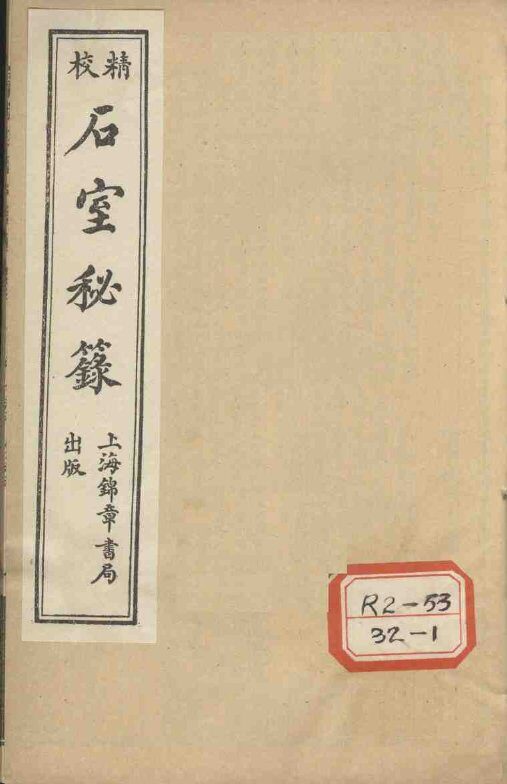 精校
石室秘籙
上海錦章書局
出版
R2-53
32-1